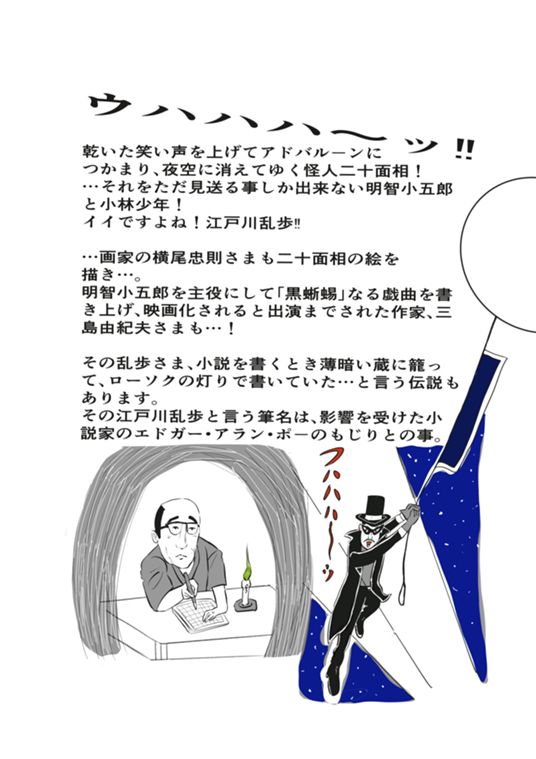 ウハハハ〜ッ!!
乾いた笑い声を上げてアドバルーンに
つかまり、夜空に消えてゆく怪人二十面相！
…それをただ見送る事しか出来ない明智小五郎
と小林少年！
イイですよね！江戸川乱歩!!
…画家の横尾忠則さまも二十面相の絵を
描き…。
明智小五郎を主役にして「黒蜥蜴」なる戯曲を書
き上げ、映画化されると出演までされた作家、三
島由紀夫さまも…！
その乱歩さま、小説を書くとき薄暗い蔵に籠っ
て、ローソクの灯りで書いていた…と言う伝説も
あります。
その江戸川乱歩と言う筆名は、影響を受けた小
説家のエドガー・アラン・ポーのもじりとの事。
フハハハ〜ッ